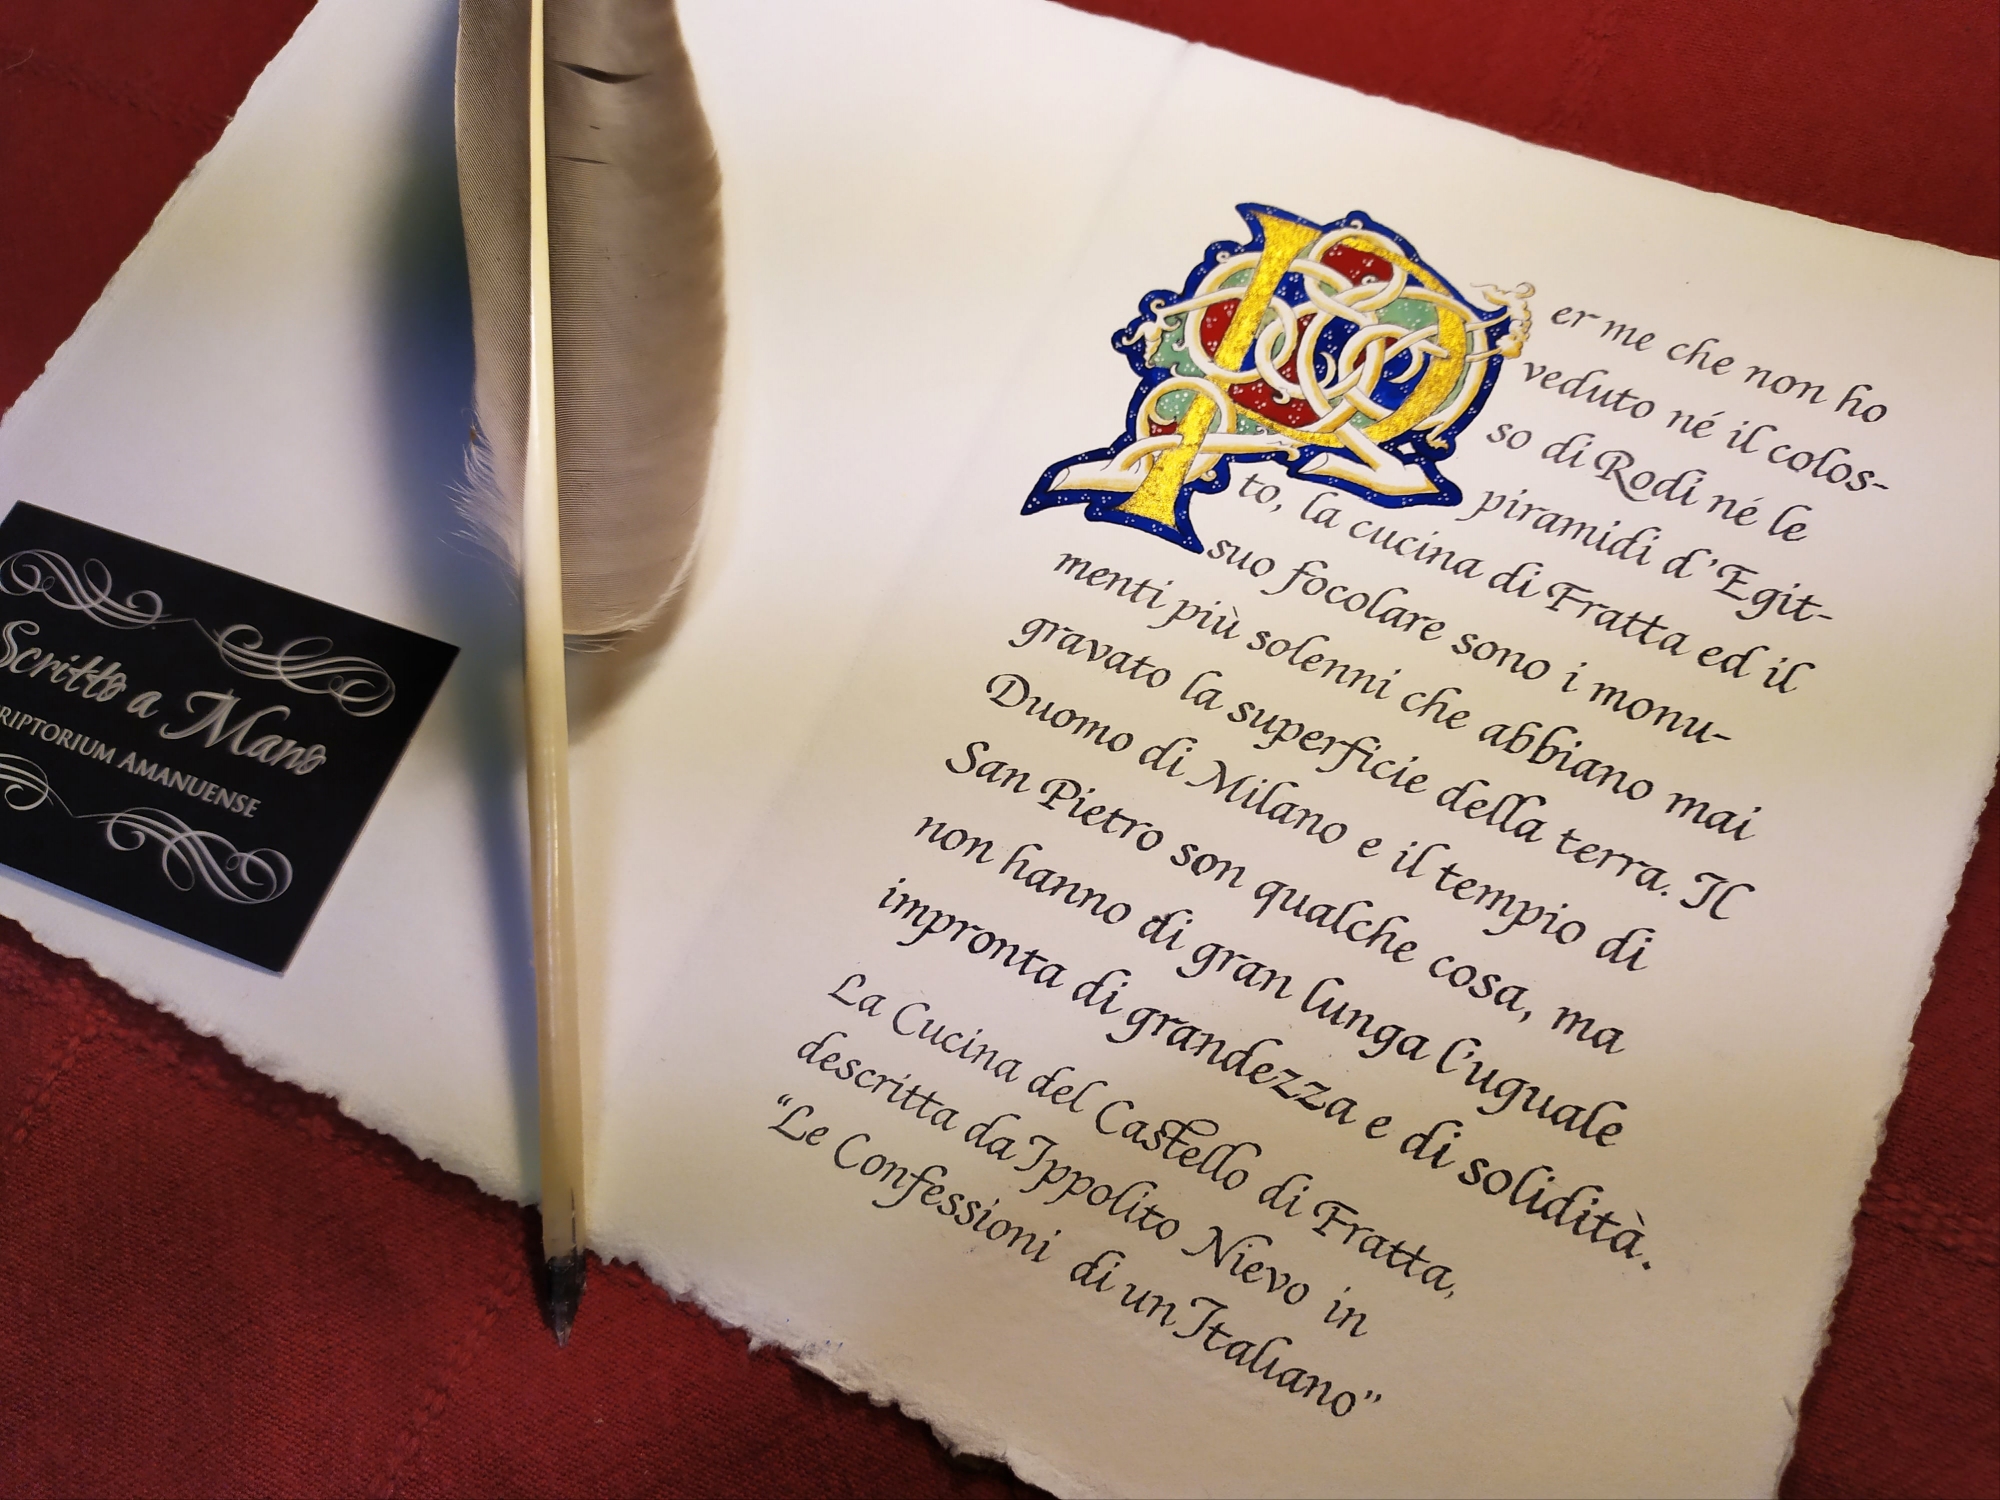 Per me che non ho
veduto né il colos-
so di Rodi né le
piramidi d'Egit-
to, la cucina di Fratta ed il
suo focolare sono i monu-
menti più solenni che abbiano mai
gravato la superficie della terra. Il
Duomo di Milano e il tempio di
San Pietro son qualche cosa, ma
non hanno di gran lunga l'uguale
impronta di grandezza e di solidità.
La Cucina del Castello di Fratta,
descritta da Ippolito Nievo in
"Le Confessioni di un Italiano"
Scritto a Mano
RIPTORIUM AMANUENSE